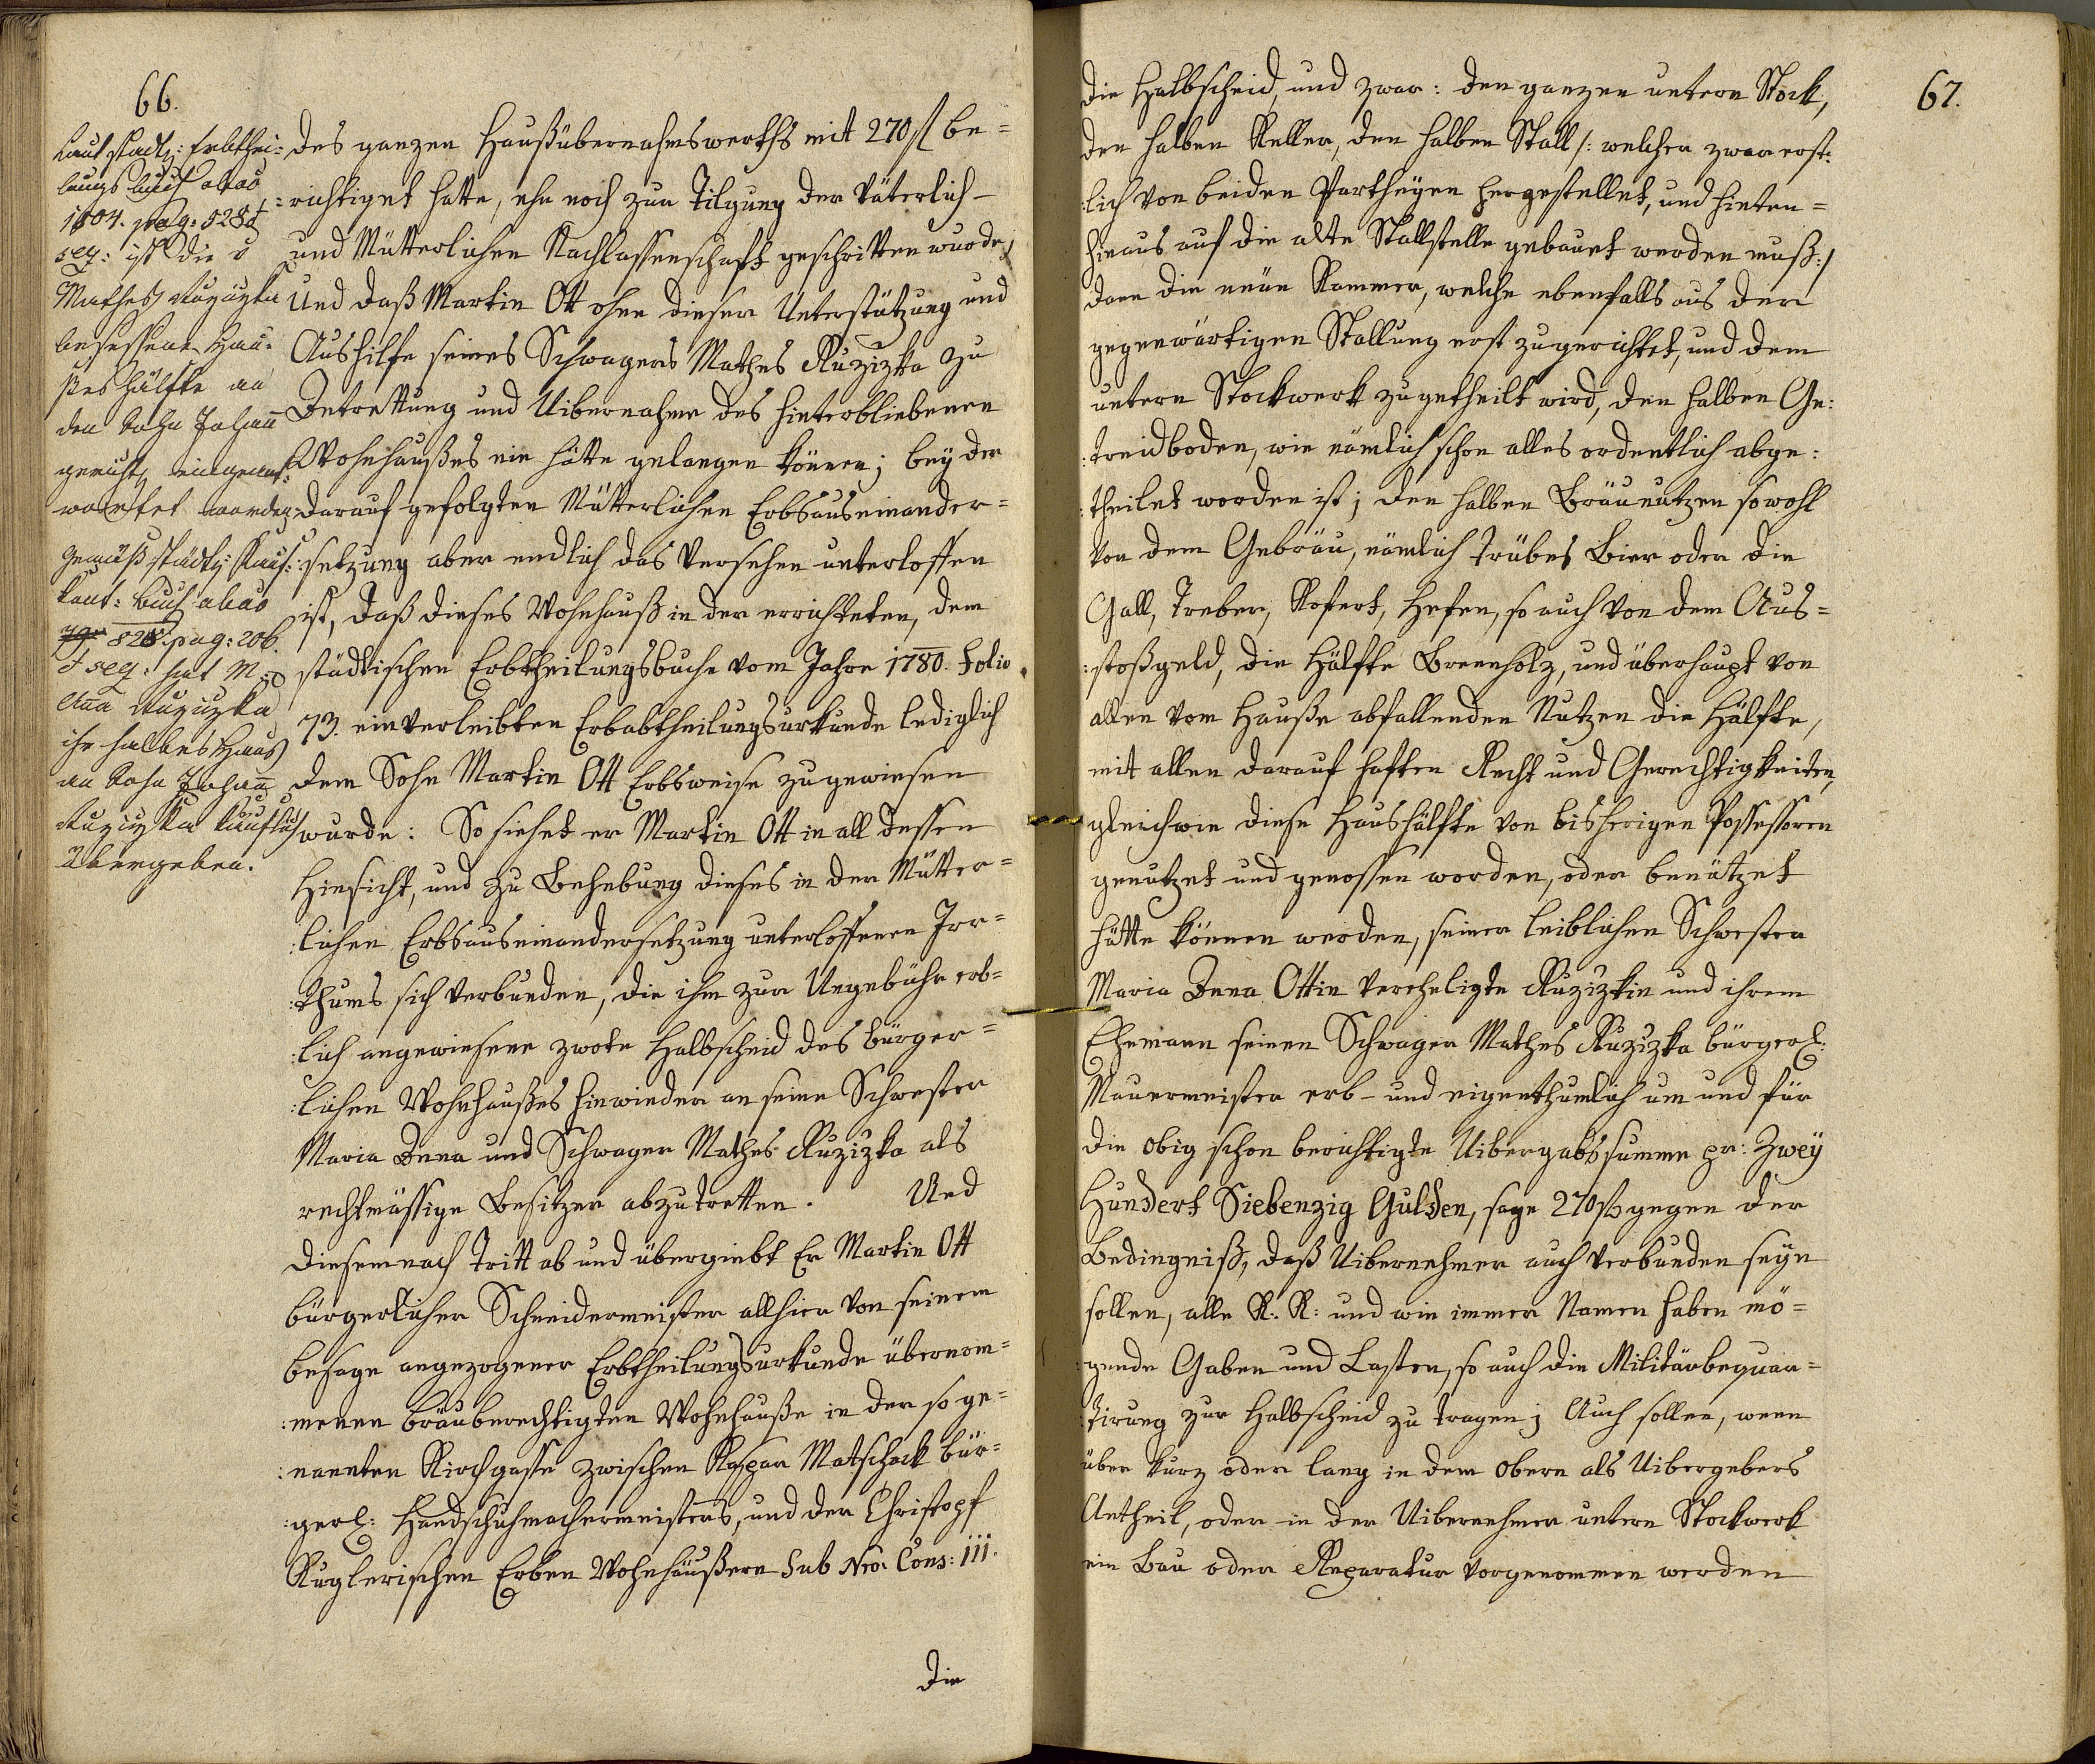 66.
Laut stadtl: Erbthei-
lungs buch abao
1804. pag: 528 et
seq: ist die v
Mathes Ruzizka
besessene Hau-
ßes hälfte an
den Sohn Johann
gerichtl eingeant-
wortet worden
Gemäß städtl: Kauf:
kont: Buch abao
828. pag: 206.
et seq: hat M:a
Ana Ruzizka
ihr halbes Haus
an Sohn Johann
Ruzizka käuflich
übergeben.
des ganzen Haußübernahmswerths mit 270 fl be-
richtiget hatte, ehe noch zur Tilgung der Väterlich-
und Mütterlichen Nachlassenschaft geschritten wurde,
Und daß Martin Ott ohne dieser Unterstützung und
Aushilfe seines Schwagers Mathes Ruzizka zu
Antrettung und Uibernahme des hinterbliebenen
Wohnhaußes nie hätte gelangen können; bey der
darauf gefolgten Mütterlichen Erbsauseinander-
setzung aber endlich das Versehen unterloffen
ist, daß dieses Wohnhauß in der errichteten, dem
städtischen Erbtheilungsbuche vom Jahre 1780. Folio
73. einverleibten Erbabtheilungsurkunde lediglich
dem Sohn Martin Ott Erbsweise zugewiesen
wurde: So siehet er Martin Ott in all dessen
Hinsicht, und zu Behebung dieses in der Mütter-
:lichen Erbsauseinandersetzung unterloffenen Irr-
:thums sich verbunden, die ihm zur Ungebühr erb-
:lich angewiesene zwote Halbscheid des bürger-
:lichen Wohnhaußes hinwieder an seine Schwester
Maria Anna und Schwager Mathes Ruzizka als
rechtmässige Besitzer abzutretten. Und
diesemnach Tritt ab und übergiebt Er Martin Ott
bürgerlicher Schneidermeister allhier von seinem
besage angezogener Erbtheilungsurkunde übernom-
:menen bräuberechtigten Wohnhauße in der so ge-
:nannten Kirchgasse zwischen Kaspar Matschack bür-
:gerl: Handschuhmachermeisters, und der Christoph
Kuglerischen Erben Wohnhäußern Sub Nro. Cons: 111.
die
67.
die Halbscheid, und zwar: den ganzen untern Stock,
den halben Keller, den halben Stall /: welcher zwar erst-
:lich von beiden Partheyen hergestellet, und hinten-
hinaus auf die alte Stallstelle gebauet werden muß :/
dann die neue Kammer, welche ebenfalls aus der
gegenwärtigen Stallung erst zugerichtet, und dem
untern Stockwerk zugetheilt wird, den halben Ge-
:treidboden, wie nämlich schon alles ordentlich abge-
:theilet worden ist; den halben Bräunutzen sowohl
von dem Gebräu, nämlich trübes Bier oder die
Gall, Treber, Kofent, Hefen, so auch von dem Aus-
:stoßgeld, die Hälfte Brennholz, und überhaupt von
allen vom Hauße abfallenden Nutzen die Hälfte,
mit allen darauf haften Recht und Gerechtigkeiten,
gleichwie diese Haushälfte von bisherigen Possessoren
genutzet und genossen worden, oder benützet
hätte können werden, seiner leiblichen Schwester
Maria Anna Ottin vereheligte Ruzizkin und ihrem
Ehemann seinen Schwager Mathes Ruzizka bürgerl:
Mauermeister erb- und eigenthumlich um und für
die obig schon berichtigte Uibergabssumme pr: Zwey
Hundert Siebenzig Gulden, sage 270 fl gegen der
Bedingniß, daß Uibernehmer auch verbunden seyn
sollen, alle K: K: und wie immer Namen haben mö-
:gende Gaben und Lasten, so auch die Militärbequar-
:tirung zur Halbscheid zu tragen; Auch sollen, wenn
über kurz oder lang in dem obern als Uibergebers
Antheil, oder in der Uibernehmer untern Stockwerk
ein Bau oder Reparatur vorgenommen werden